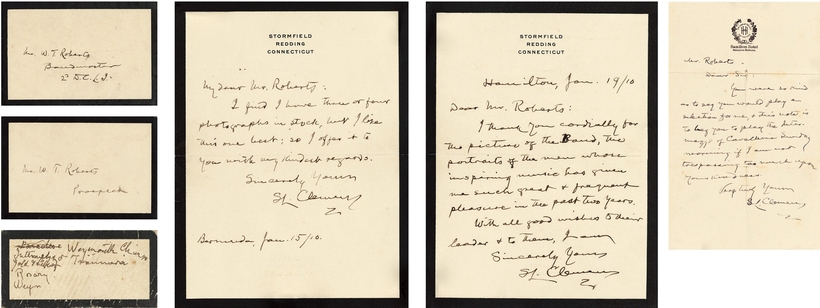 Mr. W. T. Roberts
Bandmaster
2d D.C.L.I.
Mr. W. T. Roberts
Prospect.
Weymouth
Rosary
Weyn
STORMFIELD
REDDING
CONNECTICUT
My dear Mr. Roberts:
I find I have three or four
photographs in stock, but I like
this one best; so I offer it to
you with my kindest regards.
Sincerely Yours
SL. Clemens
Bermuda, Jan. 15/10.
STORMFIELD
REDDING
CONNECTICUT
Hamilton, Jan. 19/10
Dear Mr. Roberts:
I thank you cordially for
the picture of the Band, the
portraits of the men whose
inspiring music has given
me such great & frequent
pleasure in the past two years.
With all good wishes to their
leader & to them, I am
Sincerely Yours
SL. Clemens
Hamilton Hotel
Mr. Roberts
Dear Sir
You were so kind
as to say you would play a
selection for me, & this note is
to beg you to play the Inter-
mezzo of Cavalleria Sunday
morning if I am not
trespassing too much upon
your kindness.
Truly Yours
SL. Clemens